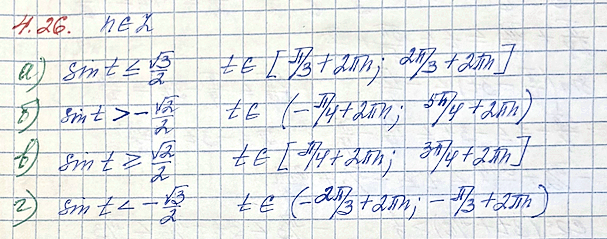 4.26. n∈Z
а) sin t ≤ √3/2 t∈ [π/3+2πn; 2π/3+2πn]
б) sin t > -√2/2 t∈ (-π/4+2πn; 5π/4+2πn)
в) sin t ≥ √2/2 t∈ [π/4+2πn; 3π/4+2πn]
г) sin t < -√3/2 t∈ (-2π/3+2πn; -π/3+2πn)